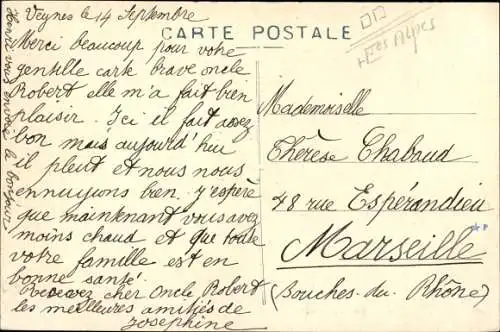 Veynes le 14 Septembre
CARTE POSTALE
Htes Alpes
Merci beaucoup pour votre
gentille carte brave oncle
Robert elle m'a fait bien
plaisir. Ici il fait assez
bon mais aujourd'hui
il pleut et nous nous
ennuyons bien. J'espère
que maintenant vous avez
moins chaud et que toute
votre famille est en
bonne santé.
Recevez cher Oncle Robert
les meilleures amitiés de
Josephine
vous envoie le bonjour
Mademoiselle
Thérèse Chabaud
48 rue Espérandieu
Marseille
(Bouches-du-Rhône)